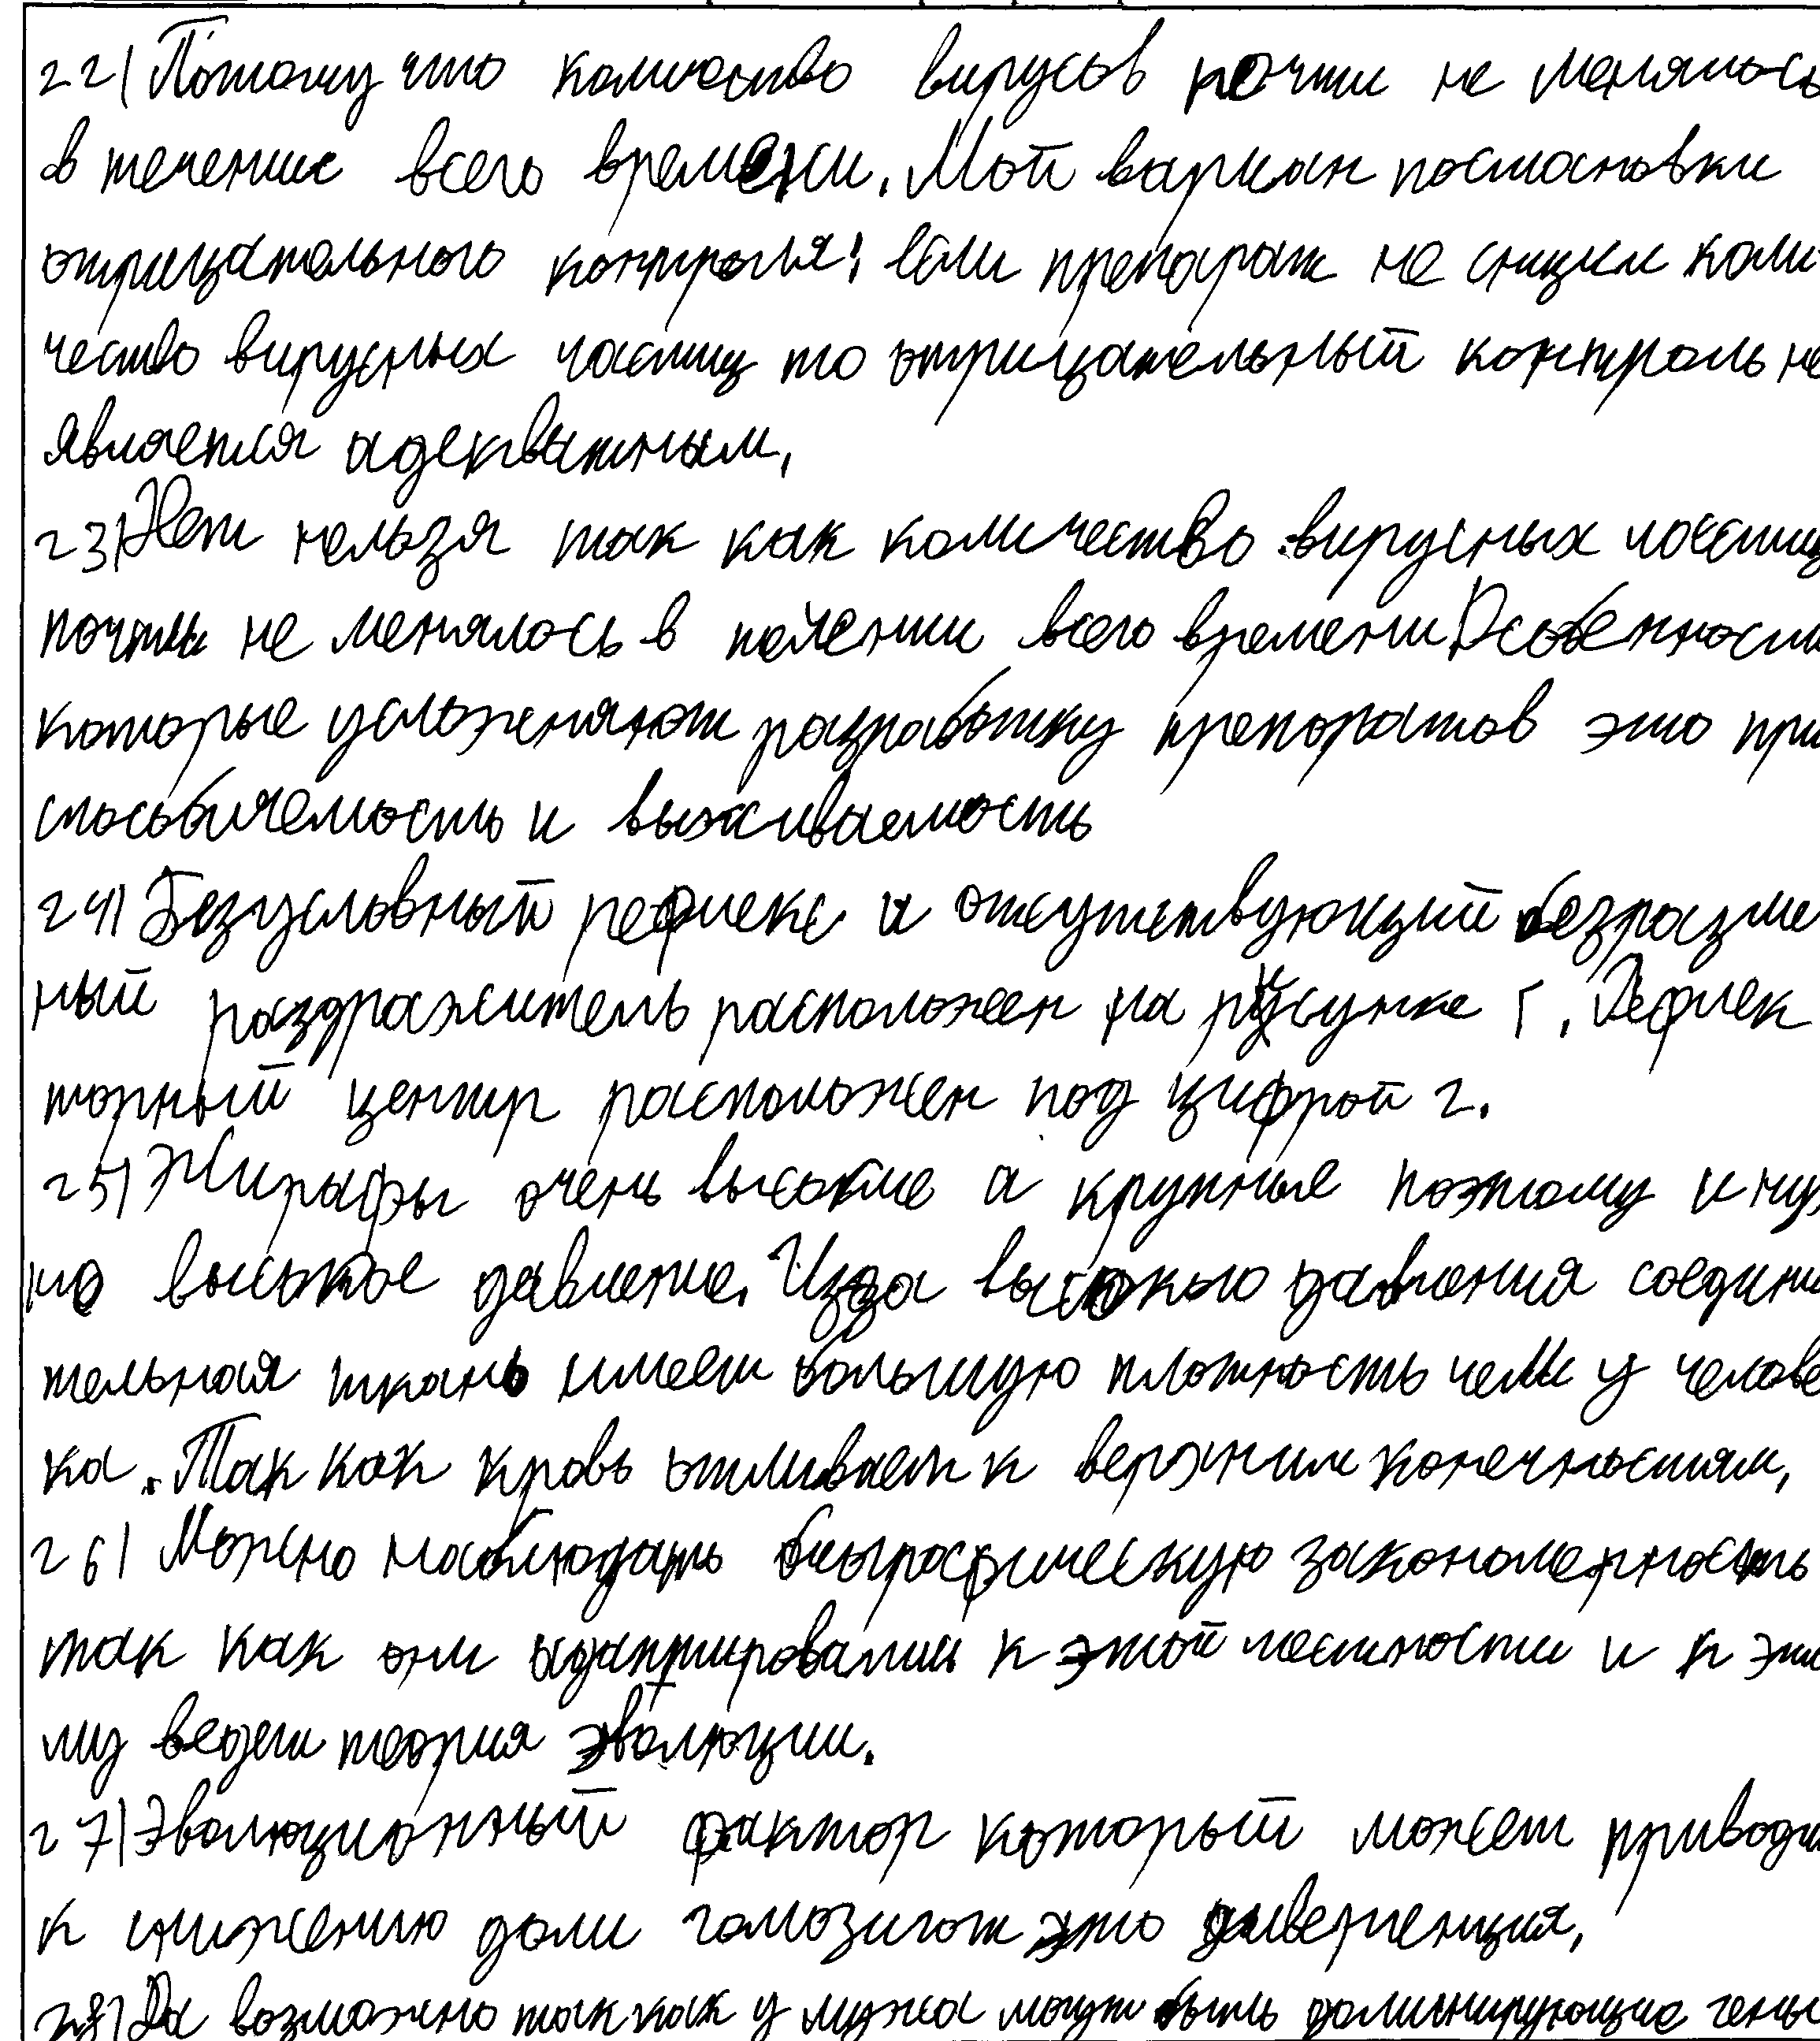 22) Потому что количество вирусов почти не менялось
в течение всего времени. Мой вариан постановки
отрицательного контроля: если препарат не снизил коли
чество вирусных частиц то отрицательный контроль не
является адекватным.
23) Нет нельзя так как количество вирусных частиц
почти не менялось в течении всего времени. Особенности
которые усложеняют разработку препоратов это при
способляемость и выживаемость
24) Безусловный рефлекс и отсутствующий безразлич
ный раздражитель расположен на рисунке Г. Рефлек
торный центр расположен под цифрой 2.
25) Жирафы очень высокие а крупные поэтому и нуж
но высокое давление. Изза высокого давления соедини
тельная ткань имеет большую плотность чем у челове
ка. Так как кровь отливает к верхним конечностям.
26) Можно наблюдать закономерность
так как они адаптировались к этой местности и к это
му ведет теория эволюции.
27) Эволюционный фактор который может приводи
к снижению доли гомозигот это дивергенция.
28) Да возможно так как у мужа могут быть доминирующие гены